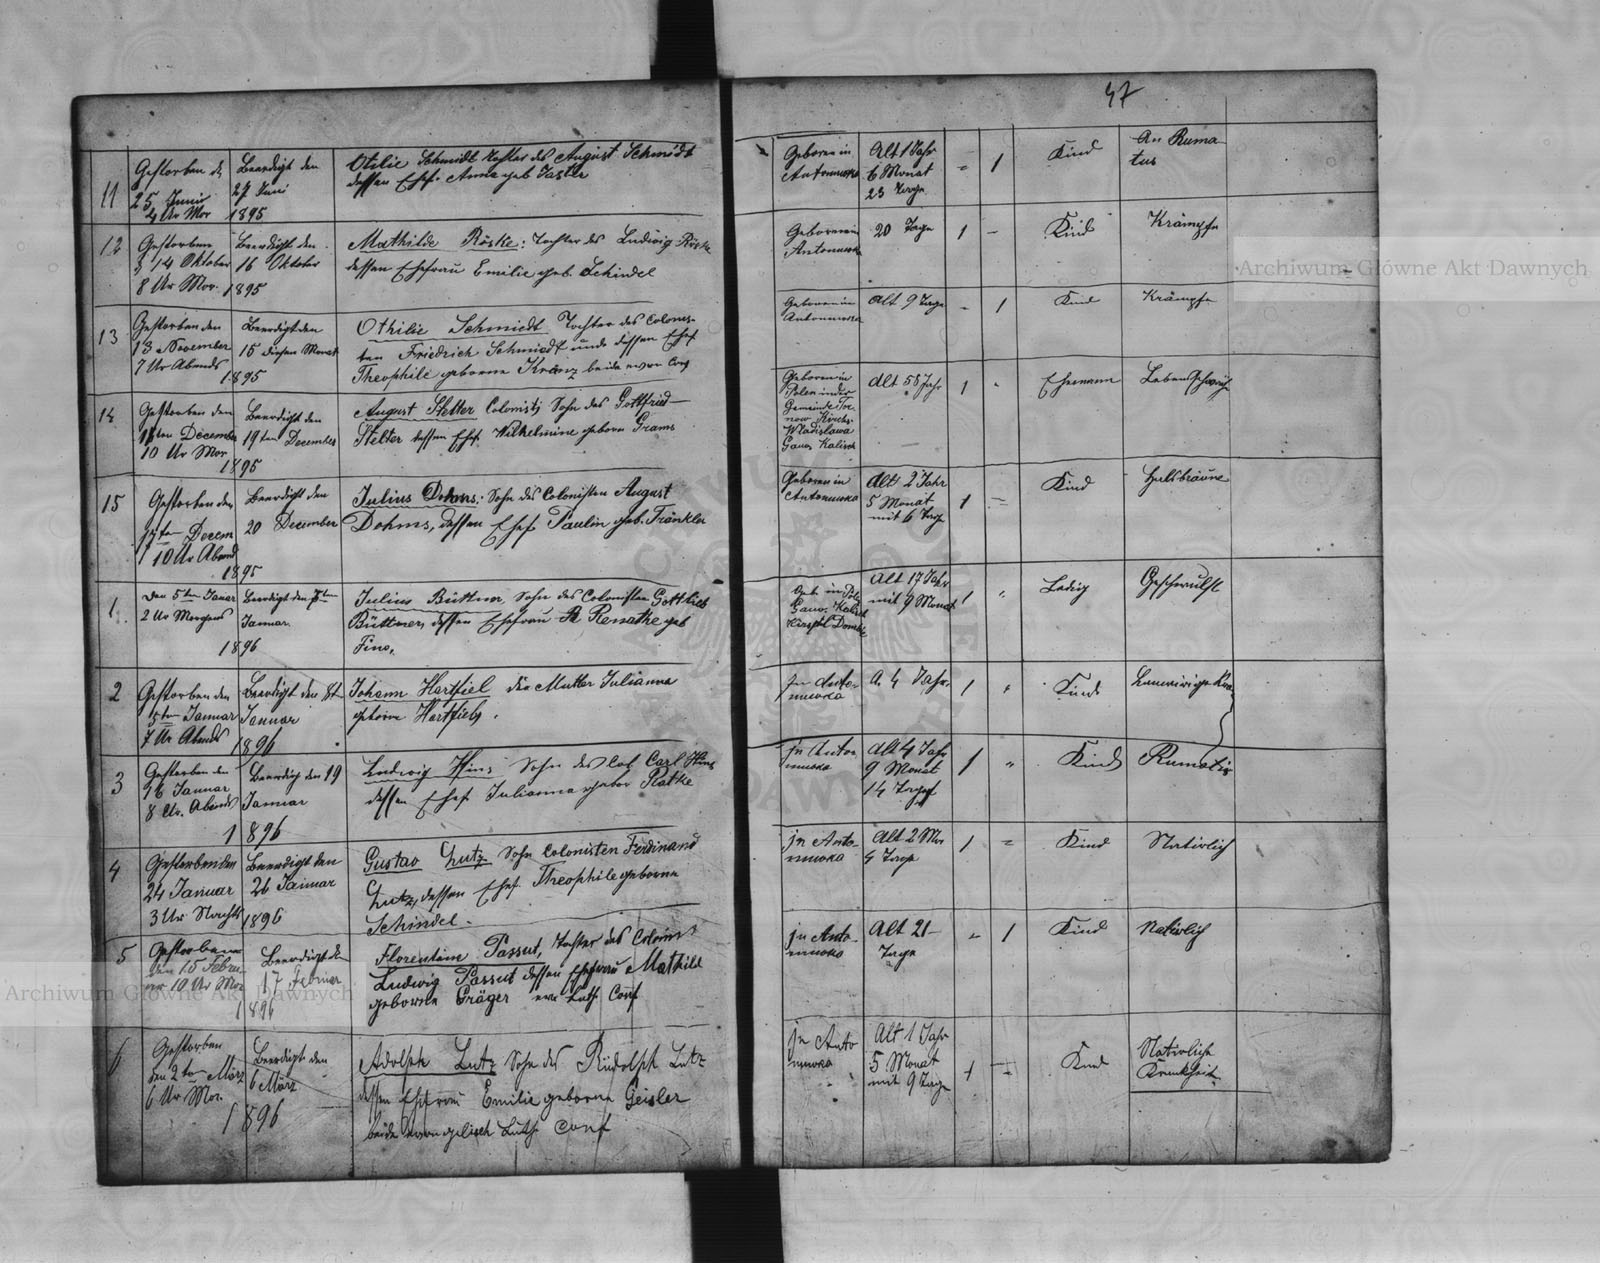 47
11
Gestorben d,
25 Junii
4 Ur Mor
Beerdigt den
27 Juni
1895
Otilie Schmidt tochter des August Schmidt
dessen Ehef. Anna geb Taster
Geboren in
Antonuwka
Alt 1 Jahr
6 Monat
23 Tage
=
1
Kind
An Ruma
tus
12
Gestorben
d 14 Oktober
8 Ur Mor.
Beerdigt den
16 Oktober
1895
Mathilde Röske: Tochter des Ludwig Röske
dessen Ehefrau Emilie geb. Schindel
Geboren in
Antonuwka
20 Tage
1
-
Kind
Krämpfe
13
Gestorben den
13 November
7 Ur Abends
Beerdigt den
15 diesen Monat
1895
Othilie Schmiedt Tochter des Colonis-
ten Friedrich Schmiedt und dessen Ehef
Theophile geborne Kranz beide evan Conf
Geboren in
Antonuwka
Alt 9 Tage
-
1
Kind
Krämpfe
14
Gestorben den
17ten December
10 Ur Mor
Beerdigt den
19ten December
1895
August Stelter Colonist; Sohn des Gottfried
Stelter dessen Ehef. Wilhelmine geborn Grams
Geboren in
Polen in der
Gemeinde Tor
now Kirchs.
Wladislawa
Gauv. Kalisch
Alt 58 Jahr
1
-
Ehemann
15
Gestorben den
17ten Decem
10 Ur Abend
Beerdigt den
20 December
1895
Julius Dohms: Sohn des Colonisten August
Dohms, dessen Ehef Paulin geb. Fränkler
Geboren in
Antonuwka
Alt 2 Jahr
5 Monat
mit 6 Tage
1
=
Kind
Halsbräune
1.
Den 5ten Januar
2 Ur Morgens
Beerdigt den 7ten
Januar
1896
Julius Büttner, Sohn des Colonisten Gottlieb
Büttner, dessen Ehefrau R Renathe geb
Fino,
Geb in Pol
Gauv. Kalisch
Kirspil Dombie
Alt 17 Jahr
mit 9 Monat
1
"
Ledig
Geschwulst
2
Gestorben den
5ten Januar
7 Ur Abends
Beerdigt den 8t
Januar
1896
Johann Hartfiel die Mutter Julianna
geborne Hartfiel.
jn Anto-
nuwka
A. 4 Jahr.
1
"
Kind
3
Gestorben den
16 Januar
8 Ur. Abends
Beerdig den 19
Januar
1896
Ludwig Hinz Sohn des Col Carl Hinz
dessen Ehef. Julianna gebor Ratke
jn Anto-
nuwka
Alt 4 Jahr
9 Monat
14 Tage
1
"
Kind
Rumatis
4
Gestorben den
24 Januar
3 Ur Nachts
Beerdigt den
26 Januar
1896
Gustav Lutz Sohn Colonisten Ferdinand
Lutz, dessen Ehef. Theophile geborne
Schindel.
jn Anto-
nuwka
Alt 2 Mo
4 Tage
1
=
Kind
Natirlich
5
Gestorben
den 15 Febru-
ar 10 Ur Mor
Beerdigt d
17 Februar
1896
Florentine Passut, Tochter des Colonis
Ludwig Passut dessen Ehefrau Mathild
geborne Gräger eva Luth. Conf
jn Anto-
nuwka
Alt 21
Tage
-
1
Kind
Natirlich
6
Gestorben
den 2ten März
6 Ur Mor.
Beerdigt den
6 März
1896
Adolph Lutz Sohn des Rudolph Lutz
dessen Ehefrau Emilie geborne Geisler
beide evangelisch Luth Conf
jn Anto
nuwka
Alt 1 Jahr
5 Monat
mit 9 Tage
1
=
Kind
Natirliche
Krankheit
Archiwum Główne Akt Dawnych
Archiwum Główne Akt Dawnych